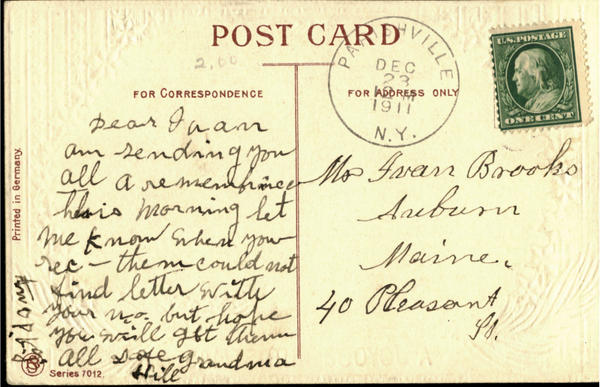 POST CARD
2.00
FOR CORRESPONDENCE
FOR ADDRESS ONLY
DEC
23
1911
N.Y.
U.S. POSTAGE
ONE CENT
Dear Ivan
am sending you
all a remembrince
this morning let
me know when you
rec - them could not
find letter with
your no. but hope
you will get them
All safe grandma
Hill
Mr Ivan Brooks
Auburn
Maine.
40 Pleasant
St.
Printed in Germany.
Series 7012.